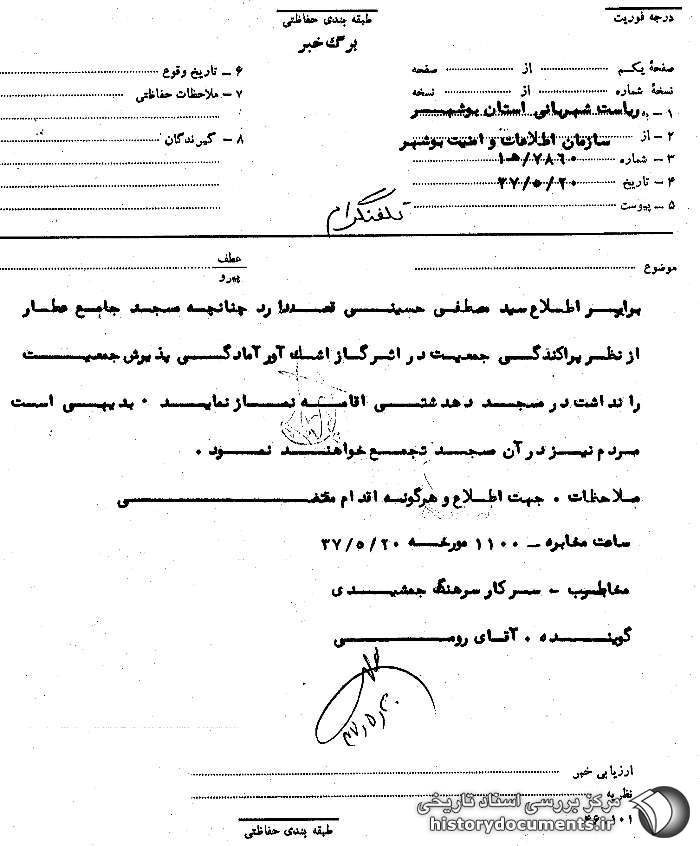 درجه فوریت
طبقه بندی حفاظتی
برگ خبر
صفحهٔ یکم ........ از ........ صفحه
نسخهٔ شماره ........ از ........ نسخه
۱ – به ریاست شهربانی استان بوشهر
۲ – از سازمان اطلاعات و امنیت بوشهر
۳ – شماره ۷۸۶۰/ه۱
۴ – تاریخ ۳۷/۵/۲۰
۵ – پیوست
۶ – تاریخ وقوع
۷ – ملاحظات حفاظتی
۸ – گیرندگان
تلفنگرام
موضوع
عطف
پیرو
برابر اطلاع سید مصطفی حسینی قصد دارد چنانچه مسجد جامع عطار
از نظر پراکندگی جمعیت در اثر گاز اشک آور آمادگی پذیرش جمعیت
را نداشت در مسجد دهدشتی اقامه نماز نماید ۰ بدیهی است
مردم نیز در آن مسجد تجمع خواهند نمود ۰
ملاحظات ۰ جهت اطلاع و هرگونه اقدام مقتضی
ساعت مخابره – ۱۱۰۰ مورخه ۳۷/۵/۲۰
مخاطب – سرکار سرهنگ جمشیدی
گوینده ۰ آقای رومی
ارزیابی خبر
نظریه
۴۶-۱۰۱
طبقه بندی حفاظتی
مرکز بررسی اسناد تاریخی
historydocuments.ir